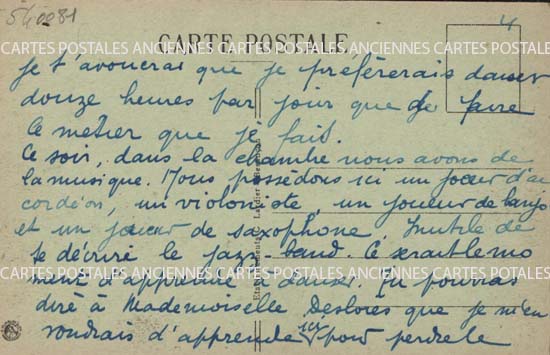 540281
4
CARTES POSTALES ANCIENNES CARTES POSTALES ANCIENNES CARTES POSTALES
CARTE POSTALE
je t'avouerai que je préférerais danser
douze heures par jour que de faire
le métier que je fait.
Ce soir, dans la chambre nous avons de
la musique. Nous possédons ici un joueur d'ac
cordéon, un violoniste, un joueur de banjo
et un joueur de saxophone. Inutile de
te décrire le jazz-band. Ce serait le mo
CARTES POSTALES ANCIENNES CARTES POSTALES ANCIENNES CARTES POSTALES
ment d'apprendre à danser. Tu pourras
dire à Mademoiselle Deslores que je m'en
voudrais d'apprendre ici pour perdre le